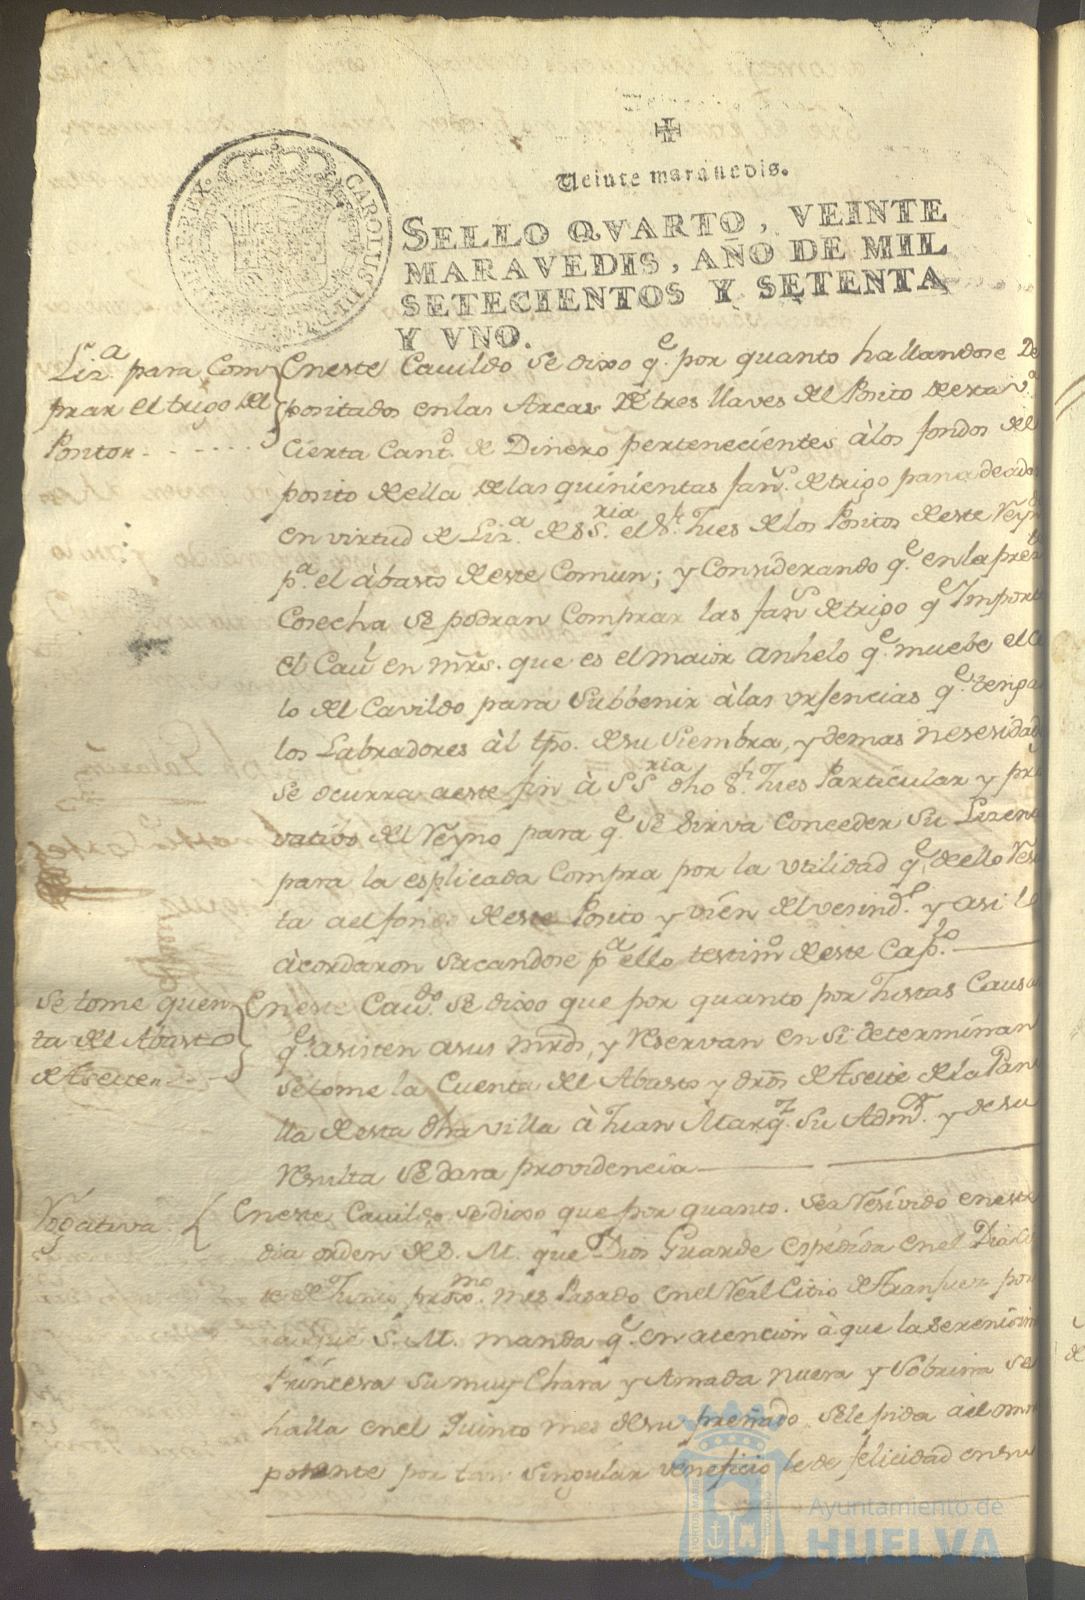 Veinte maravedis.
SELLO QVARTO, VEINTE
MARAVEDIS, AÑO DE MIL
SETECIENTOS Y SETENTA
Y VNO.
CAROLUS III
REX
Liz.ª para Com
prar el trigo del
Positon
En este Cavildo se dixo q.e por quanto hallandose De
positados en las Arcas de tres llaves del Posito de esta v.ª
Cierta Cant.d de Dinero pertenecientes à los fondos del
posito de ella de las quinientas fan.s de trigo panadeadas
en virtud de Liz.ª de S S.ria el S.r Jues de los Positos de este Reyno
p.ª el àbasto de este Comun; y Considerando q.e en la pres.te
Cosecha se podran Comprar las fan.s de trigo q.e Importe
el Cau.l en mrs. que es el maior anhelo q.e muebe el Ce
lo del Cavildo para Subbenir à las vrsencias q.e tengan
los Labradores àl tpo. de su Siembra, y demas nesesidad
se ocurra a este fin à S S.ria dho S.r Jues Particular y pri
vatibo del Reyno para q.e se Sirva Conceder su Lizencia
para la esplicada Compra por la vtilidad q.e de ello Resul
ta a el fondo de este Posito y vien del vesind.o y asi lo
àcordaron sacandose p.ª ello testim.o de este Cap.lo
Se tome quen
ta del Abasto
de Aseite
En este Cau.do Se dixo que por quanto por Justas Causas
q.e asisten a sus mrds, y Reservan en Si determinan
Se tome la Cuenta del Abasto y dros de Aseite de la Pani
lla de esta dha villa à Juan Marq.z Su Adm.or y de su
Resulta Se dara providencia
Rogativa
En este Cavildo se dixo que por quanto. Se a Resivido en este
dia orden de S. M. que Dios Guarde espedida en el Dia
de Junio prox.mo mes Pasado en el Real Citio de Aranjuez por
la que S. M. manda q.e en atencion à que la Serenisima
Princesa Su muy Chara y Amada nuera y Sobrina se
halla en el Quinto mes de su preñado Se le pida àl omni
potente por tan Singular veneficio le de felicidad en su
Ayuntamiento de
HUELVA